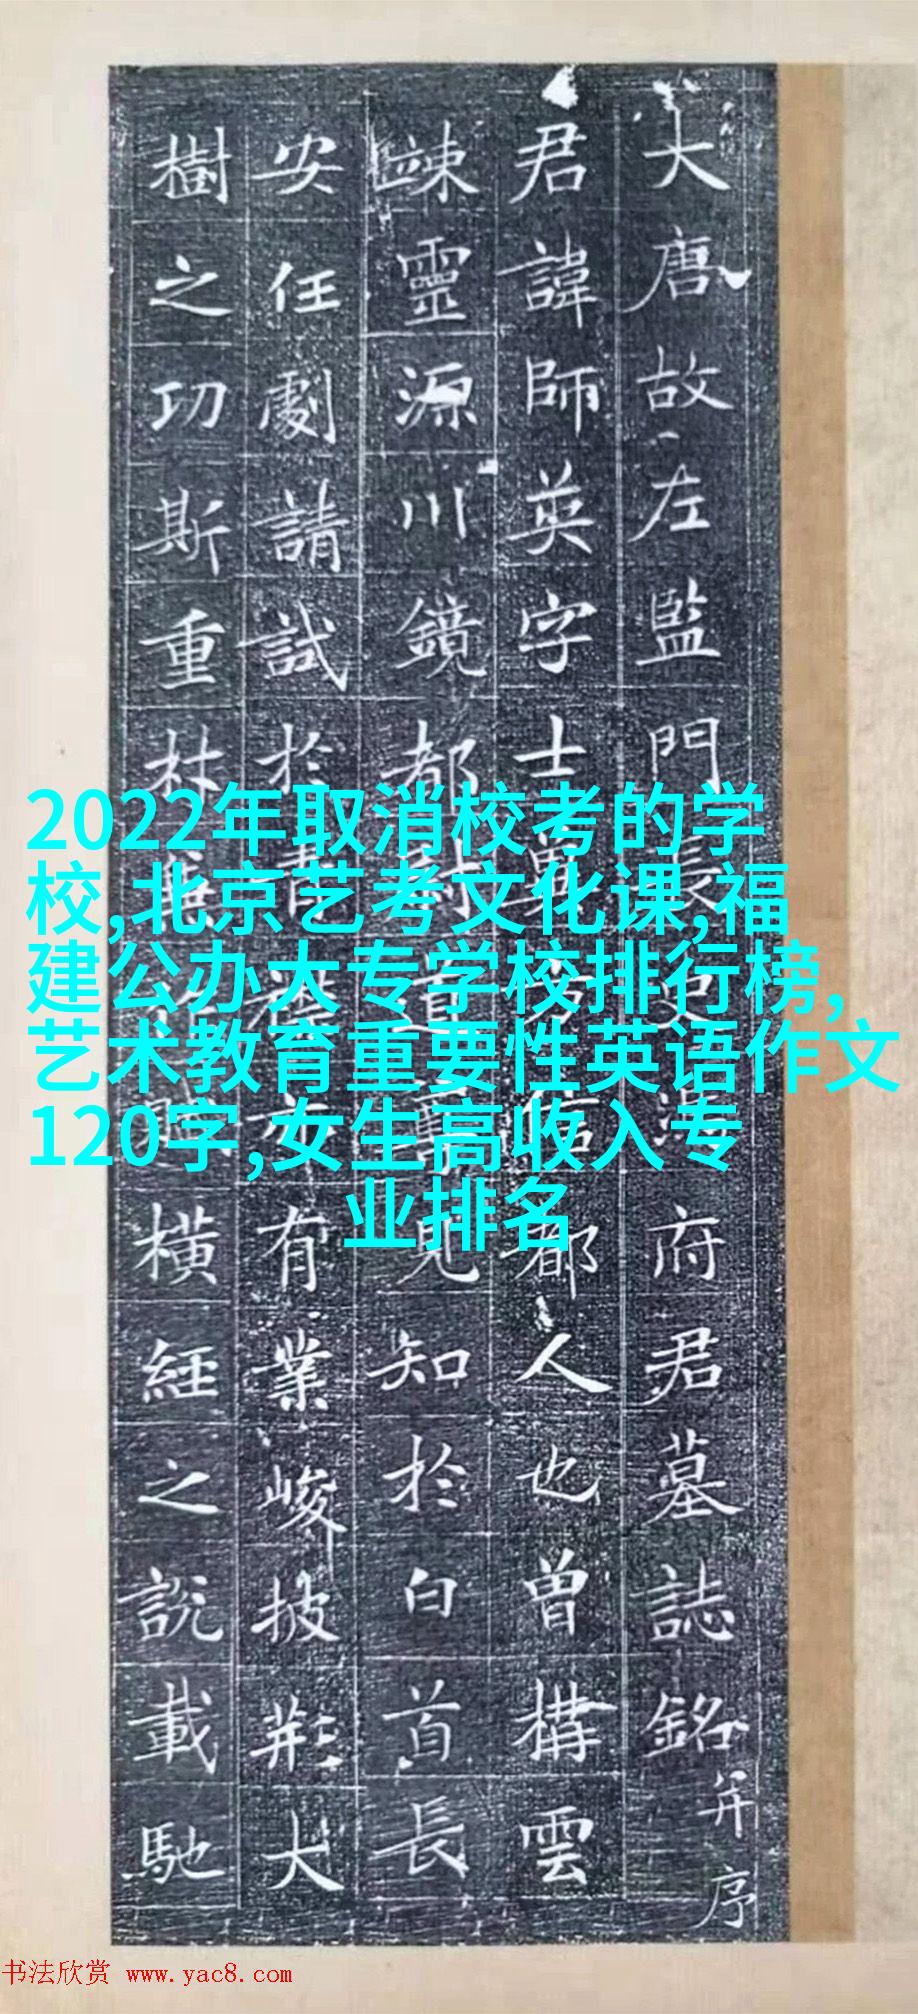 2022年取消校考的学
校,北京艺考文化课,福
建公办大专学校排行榜,
艺术教育重要性英语作文
120字,女生高收入专
业排名
大唐故左監門長史府君墓誌銘并序
君諱師英字士都人也曾構雲
竦靈源川鏡都尉道高見知於白首長
安任劇請試於有業峻披荆大
樹之功斯重林橫經之說載馳
书法欣赏 www.yac8.com